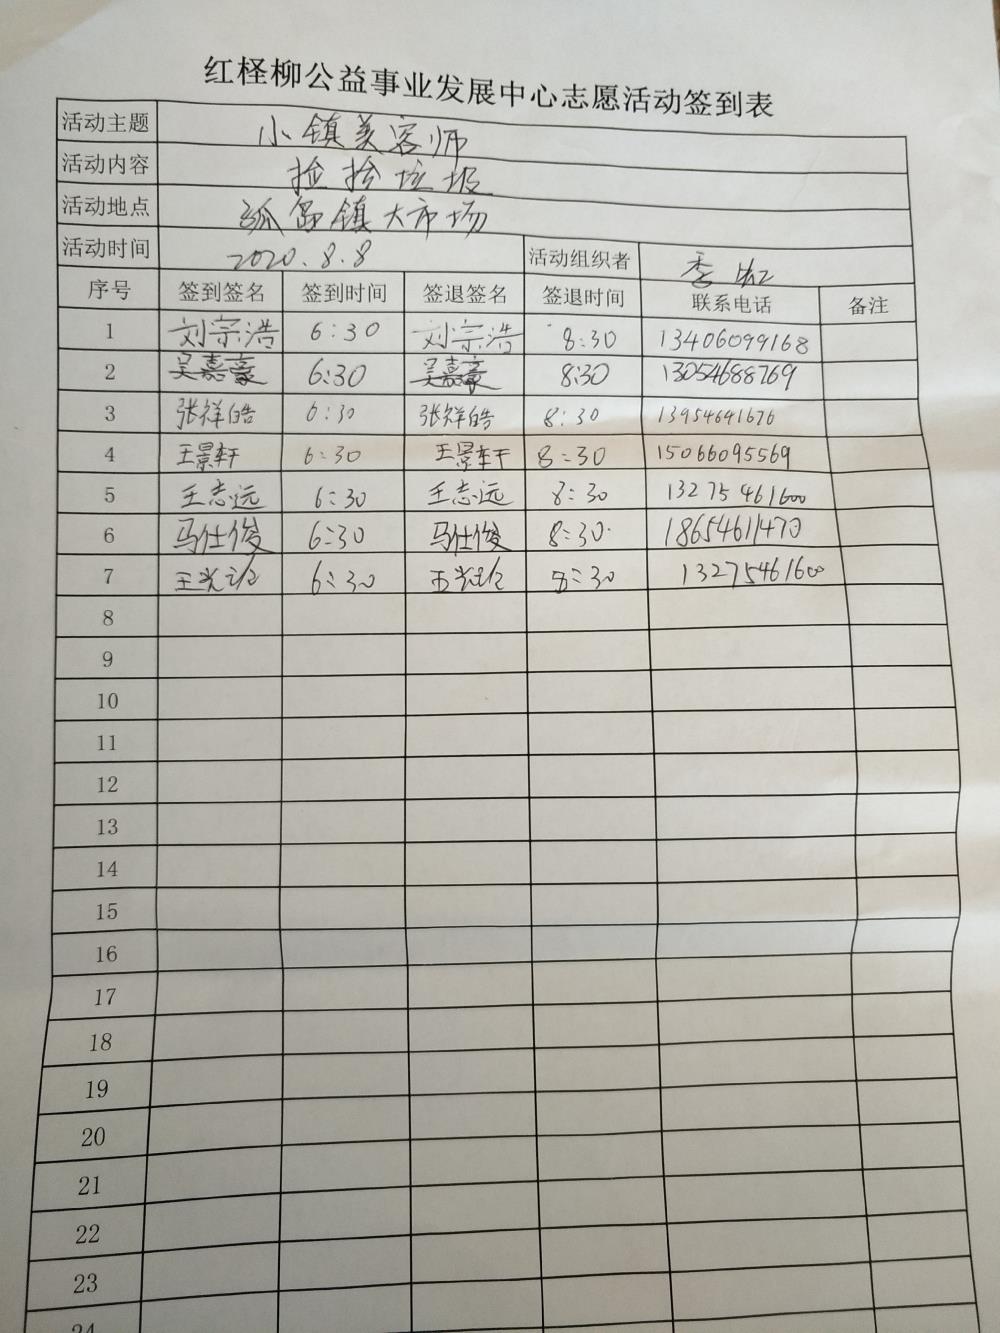 红柽柳公益事业发展中心志愿活动签到表
活动主题 小镇美容师
活动内容 捡拾垃圾
活动地点 孤岛镇大市场
活动时间 2020.8.8 活动组织者 季虹
序号 签到签名 签到时间 签退签名 签退时间 联系电话 备注
1 刘宗浩 6:30 刘宗浩 8:30 13406099168
2 吴嘉豪 6:30 吴嘉豪 8:30 13054688769
3 张祥皓 6:30 张祥皓 8:30 13954641676
4 王景轩 6:30 王景轩 8:30 15066095569
5 王志远 6:30 王志远 8:30 13275461600
6 马仕俊 6:30 马仕俊 8:30 18654611470
7 6:30 8:30 13275461600
8
9
10
11
12
13
14
15
16
17
18
19
20
21
22
23
24